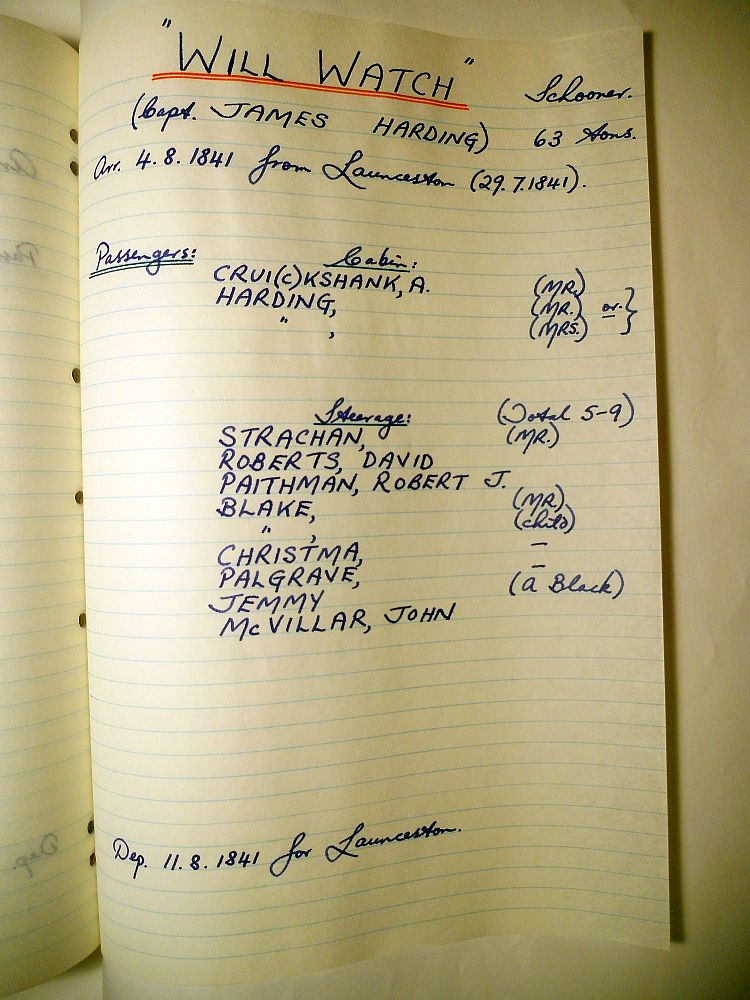 "WILL WATCH" Schooner.
(Capt. JAMES HARDING) 63 tons.
Arr. 4.8.1841 from Launceston (29.7.1841).
Passengers: Cabin:
CRUI(C)KSHANK, A. (MR.)
HARDING, (MR.) or }
" , (MRS.)
Steerage: (Total 5-9)
STRACHAN, (MR.)
ROBERTS, DAVID
PAITHMAN, ROBERT J.
BLAKE, (MR.)
" , (child)
CHRISTMA, –
PALGRAVE, –
JEMMY (a Black)
McVILLAR, JOHN
Dep. 11.8.1841 for Launceston.